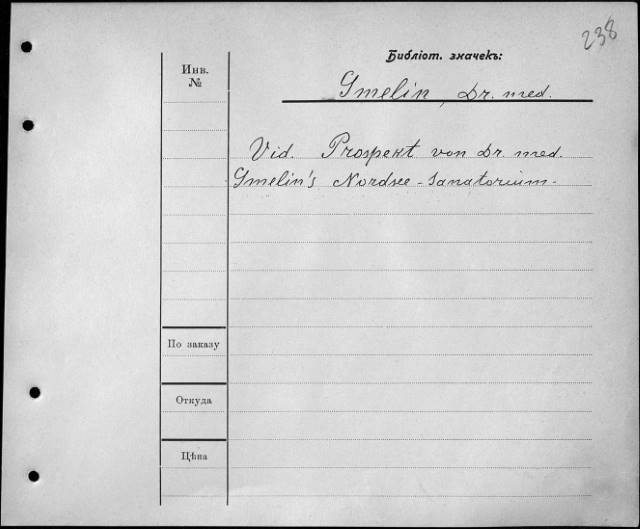 238
Библіот. значекъ:
Инв.
№
Gmelin, Dr. med.
Vid. Prospekt von Dr. med.
Gmelin's Nordsee-Sanatorium.
По заказу
Откуда
Цѣна